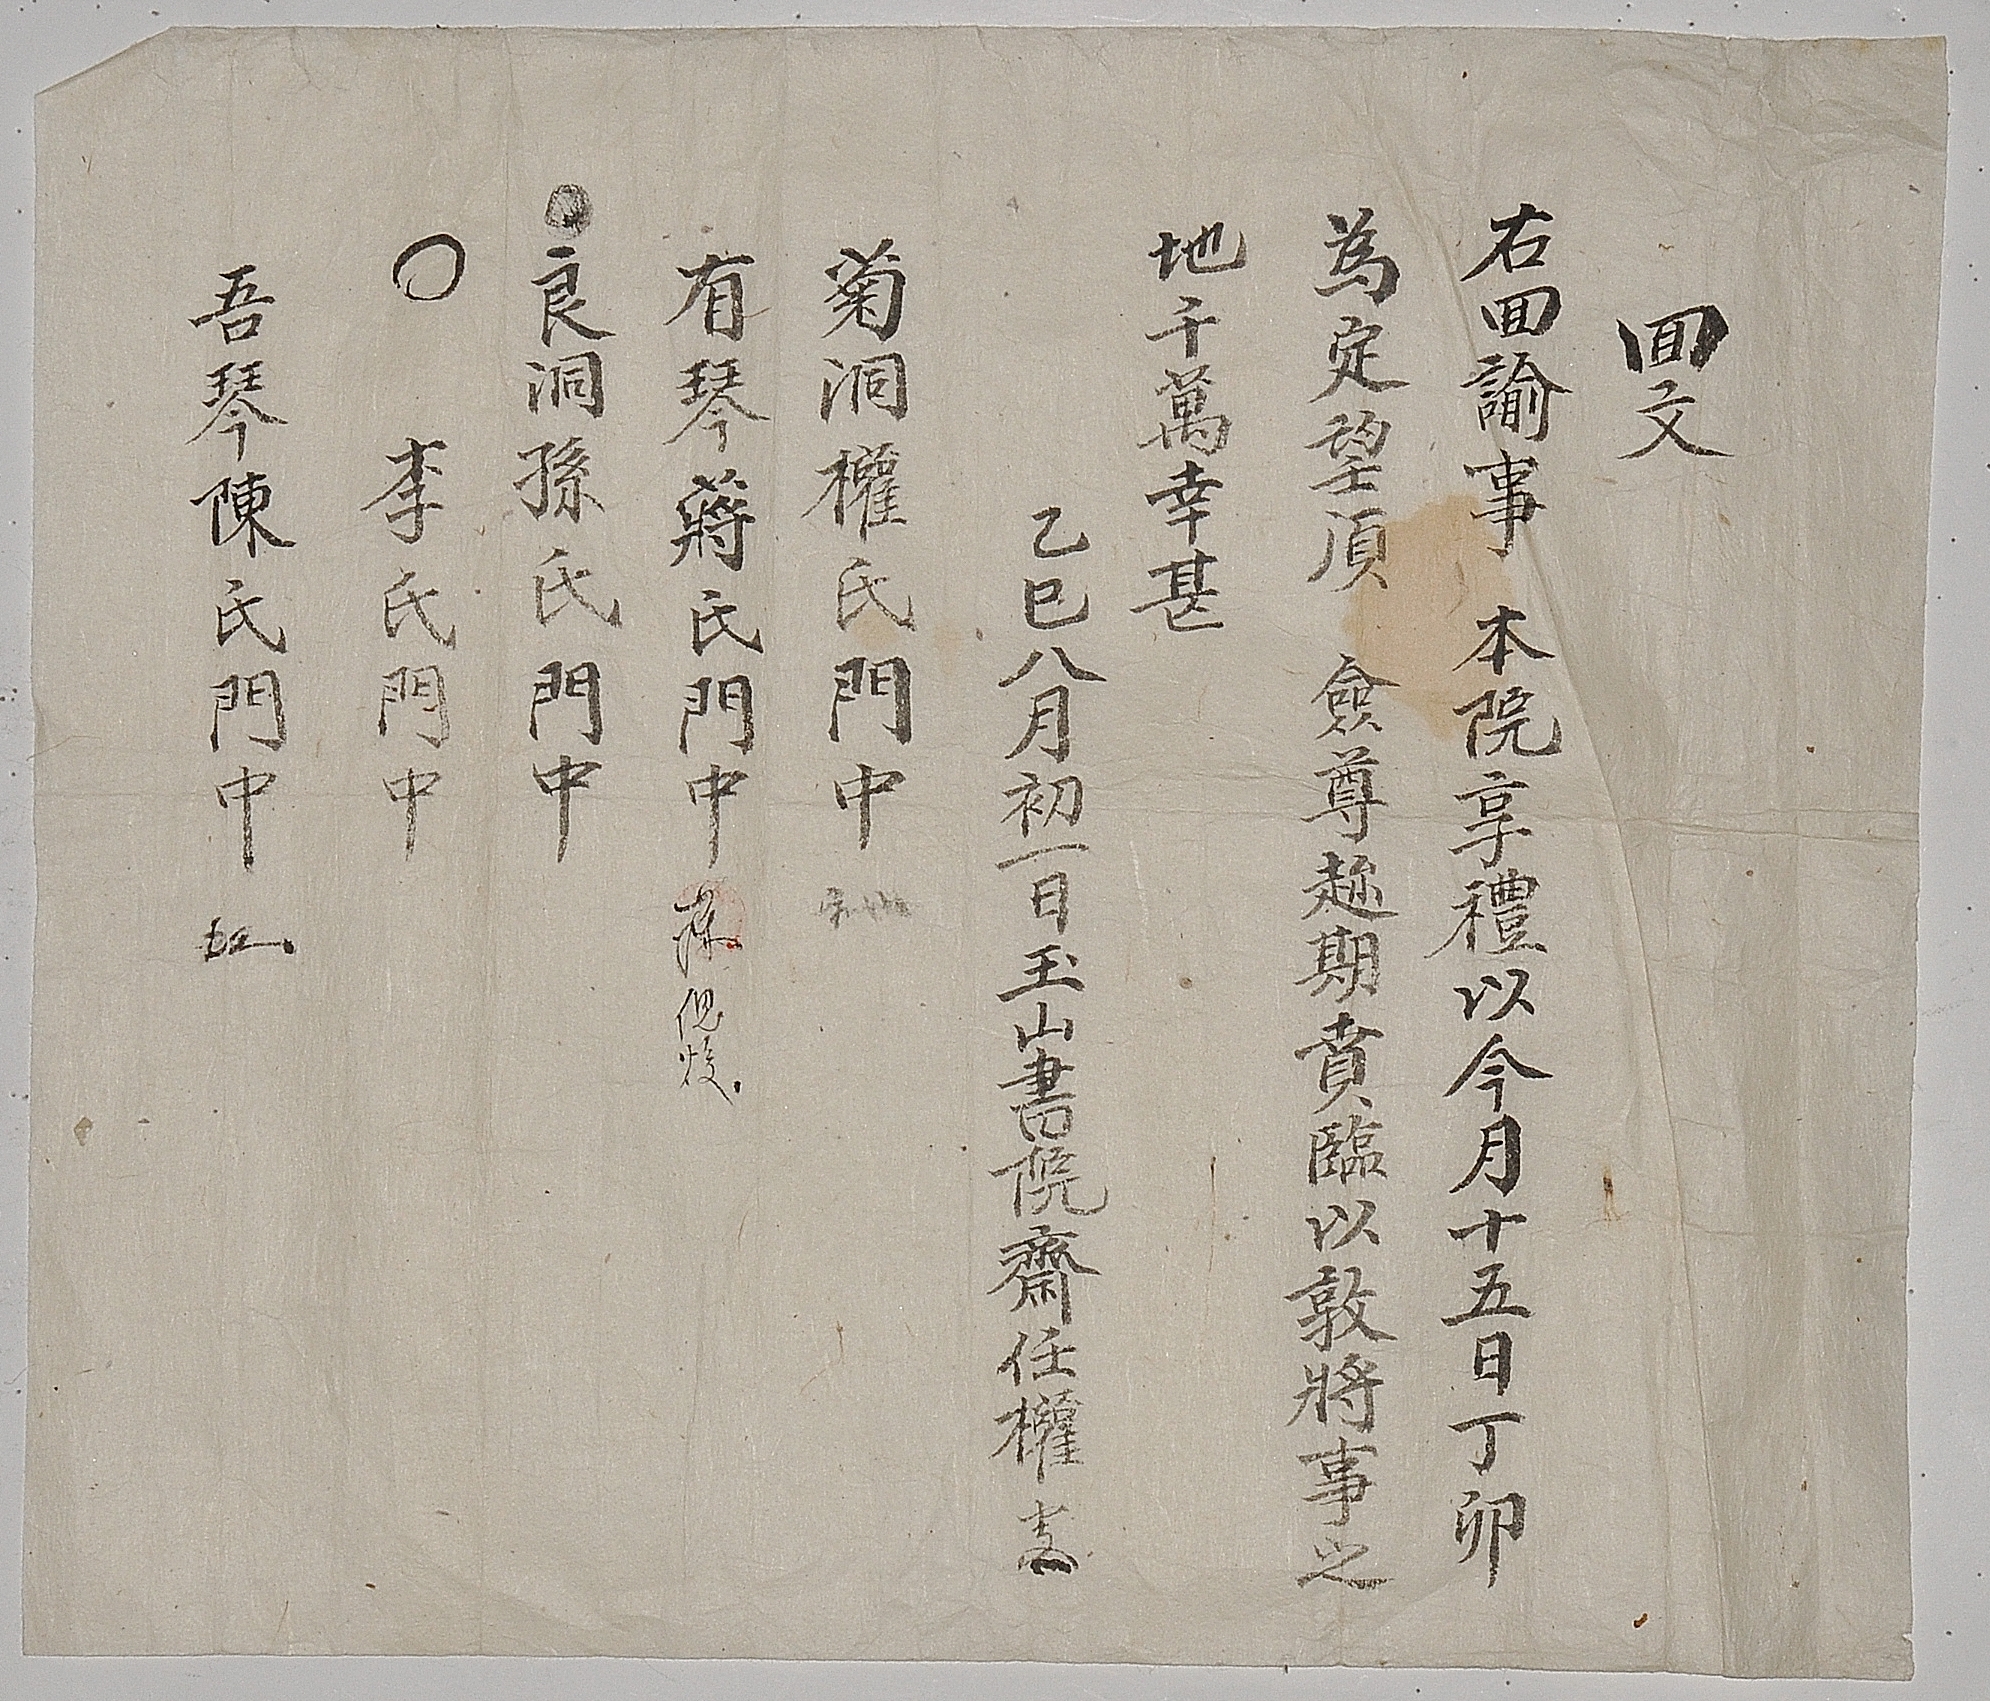 回文
右回諭事 本院享禮以今月十五日丁卯
為定望湏 僉尊趁期賁臨以敦將事之
地千萬幸甚
乙巳八月初一日玉山書院齋任權
菊洞權氏門中
有琴蔣氏門中
良洞孫氏門中
李氏門中
吾琴陳氏門中